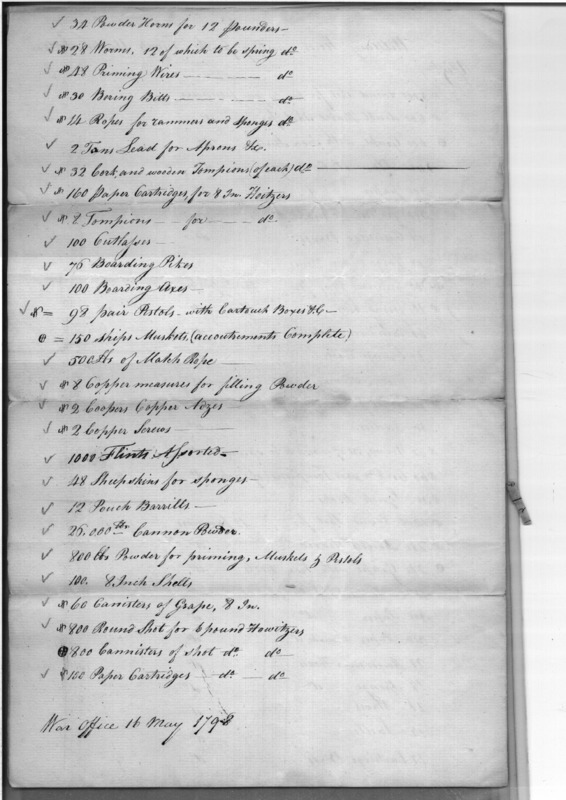 ✓ 34 Powder Horns for 12 pounders—
✓ 28 Worms, 12 of which to be spring do
✓ 48 Priming Wires — — — — do
✓ 30 Boring Bitts — — — — do
✓ 14 Ropes for rammers and sponges do
✓ 2 Tons Lead for Aprons &c.
✓ 32 Cork and wooden Tompions (of each) do
✓ 160 Paper Cartridges, for 8 In. Hoitzers
✓ 8 Tompions — for — do
✓ 100 Cutlasses —
✓ 76 Boarding Pikes
✓ 100 Boarding Axes —
✓ = 98 pair Pistols – with Cartouch Boxes &C—
= 150 Ships Muskets, (accoutrements Complete)
✓ 500 lbs of Match Rope —
✓ 8 Copper measures for filling Powder
✓ 2 Coopers Copper Adzes
✓ 2 Copper Screws —
✓ 1000 Flints Assorted —
✓ 48 Sheepskins for sponges —
✓ 12 Pouch Barrills —
✓ 26,000 lbs Cannon Powder.
✓ 800 lbs Powder for priming, Muskets & Pistols
✓ 100. 8 Inch Shells
✓ 60 Canisters of Grape, 8 In.
✓ 800 Round Shot for 6 pound Howitzers
800 Cannisters of shot do. do—
✓ 100 Paper Cartridges — do — do—
War Office 16 May 1798